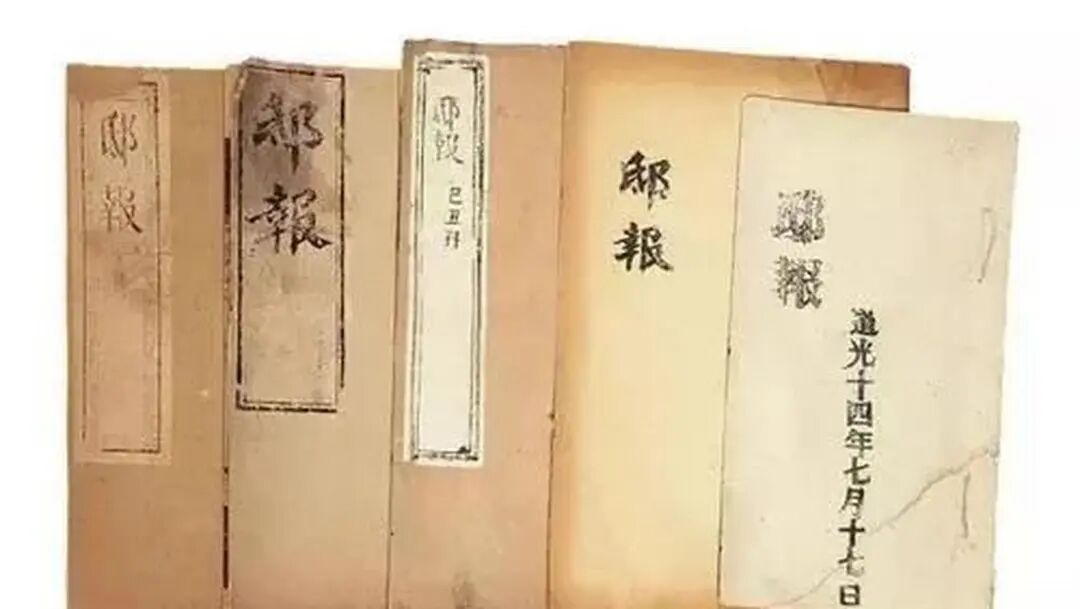 邸報
邸報
邸報
己丑冊
邸報
邸報
道光十四年七月十七日